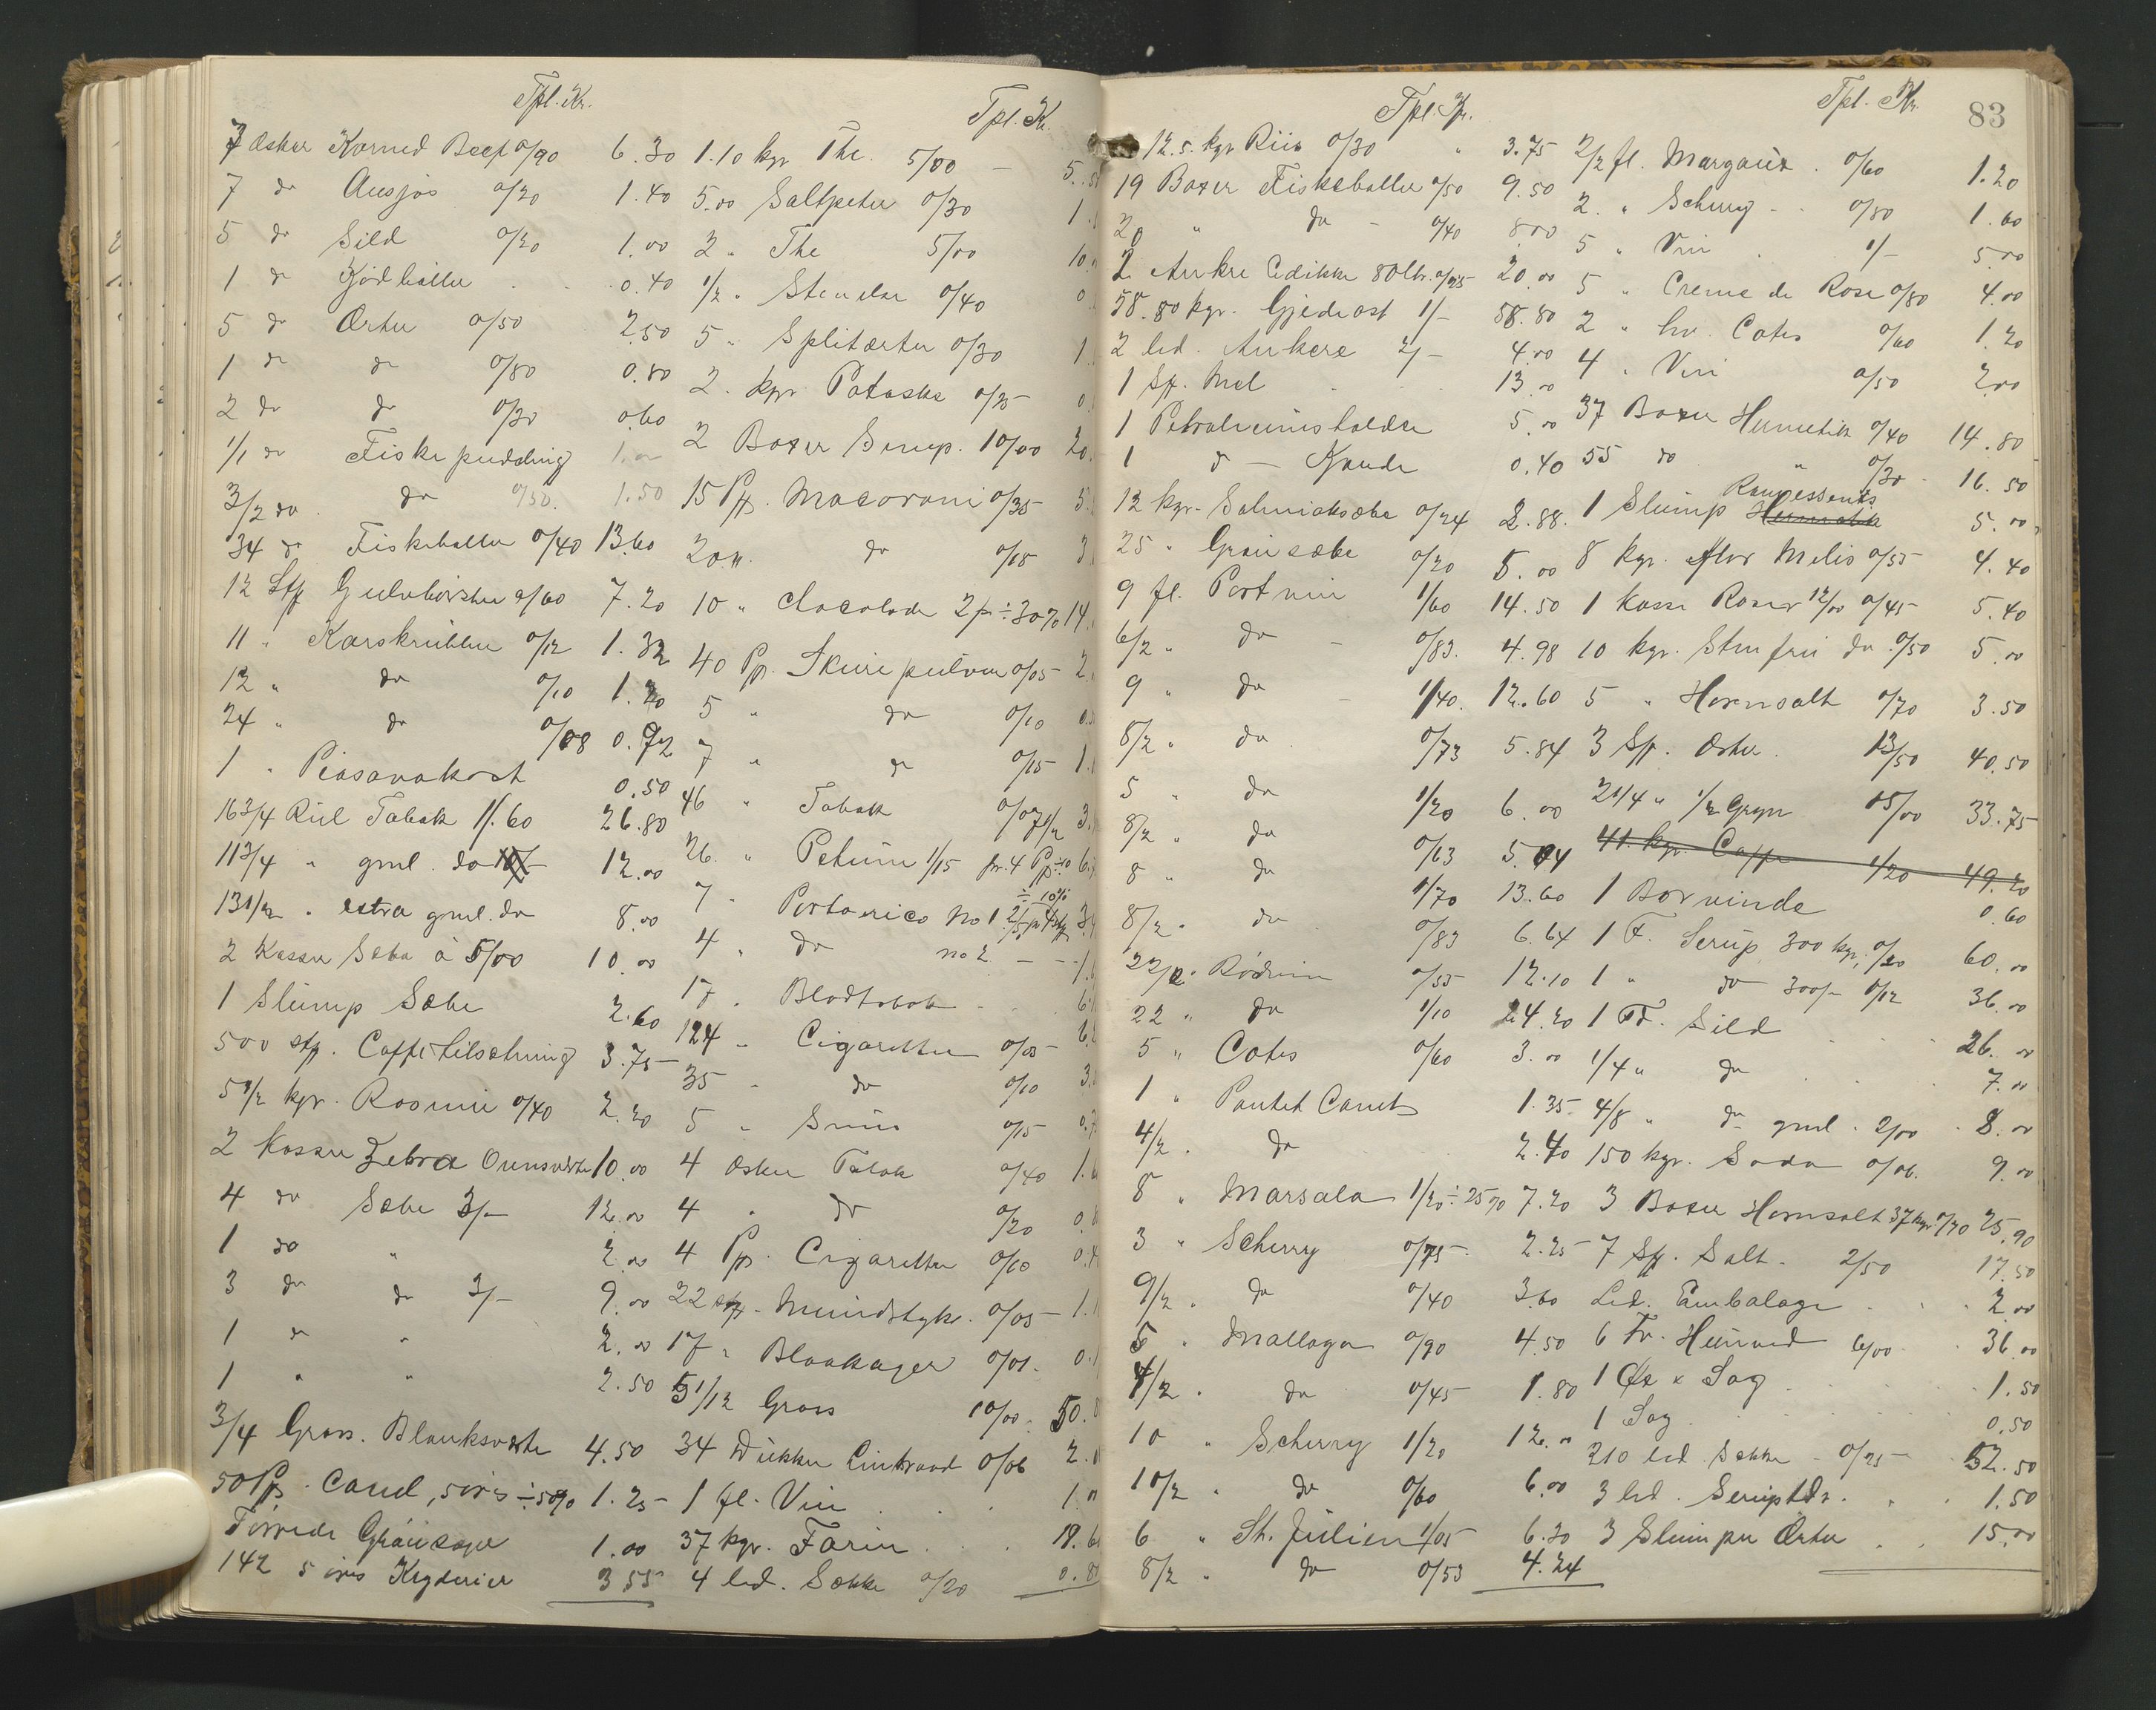 Tpl. Kr.
7 Æsker Korned Beef 0/90 6.30
7 do Ansjos 0/20 1.40
5 do Sild 0/20 1.00
1 do Kjødboller 0.40
5 do Ærter 0/50 2.50
1 do do 0/80 0.80
2 do do 0/30 0.60
1/1 do Fiskepudding 1.00
3/2 do do 0/50. 1.50
34 do Fiskeboller 0/40 13.60
12 Stk Gulvbørster 0/60 7.20
11 " Karskrubber 0/12 1.32
12 " do 0/10 1.20
24 " do 0/08 0.72
1 " Piasavakost 0.50
16 3/4 Rul Tobak 1/.60 26.80
11 3/4 " gml. do 12.00
13 1/2 " extra gml. do 8.00
2 Kasser Sæbe à 5/00 10.00
1 Slump Sæbe 2.60
500 stk. Caffetilsetning 3.75
5 1/2 kgr. Rosiner 0/40 2.20
2 Kasser Zebra Ovnsværte 10.00
4 do Sæbe 3/- 12.00
1 do " 2.00
3 do do 3/- 9.00
1 do " 2.00
1 " " 2.50
3/4 Gross. Blanksværte 4.50
50 Pk. Canel, 5 øres ÷ 50% 1.25
Tørrede Grønsager 1.00
142 5 øres Kryderier 3.55
Tpl. Kr.
1.10 kgr The. 5/00 – 5.5
5.00 Saltpeter 0/30 1.
2 " The 5/00 10.
1/2 " Stendar 0/40 0
5 " Splitærter 0/30 1.
2. kgr Potaske 0/25 0.
2 Boxer Sirup. 10/00 20.
15 Pk. Macoroni 0/35 5.
20 " do 0/15 3
10 " Chocolade 2/- ÷ 30% 14.
40 Pk. Skurepulver 0/05 2.
5 " do 0/10 0.
7 " do 0/15 1.
46 " Tobak 0/07 1/2 3.
26. " Petum 1/15 pr. 4 Pk ÷ 10 6.
÷ 10%
7 " Portorico No 1 2/5 pr 4 stk 3.
4 " do no 2 – – 1.
17 " Bladtobak 6.
124 " Cigaretter 0/05 6.
35 " do 0/10 3.
5 " Snus 0/15 0.7
4 Æsker Tobak 0/40 1.6
4 " do 0/20 0.8
4 Pk. Cigaretter 0/10 0.4
22 stk. Mundstyke. 0/05 1.1
17 " Blaakager 0/01. 0.1
5 1/12 Gross 10/00. 50.
34 Dukker Lintraad 0/06 2.0
1 fl. Vin 1.0
37 kgr. Farin 18.6
4 led. Sække 0/20 0.8
83
Tpl. Kr.
12.5. kgr Riis 0/30 " 3.75
19 Boxer Fiskeboller 0/50 9.50
20 " do – 0/40 8.00
2 Ankre Edikke 80 ltr. 0/25 20.00
58.80 kgr. Gjedeost 1/- 58.80
2 led. Ankere 2/- 4.00
1 Sk. Mel 13.00
1 Petroleumsholder 5.00
1 do – Kande 0.40
12 kgr. Salmiaksæbe 0/24 2.88.
25 " Grønsæbe 0/20 5.00
9 fl. Portvin 1/60 14.50
6/2 " do – 0/83. 4.98
9 " do – 1/40. 12.60
8/2 " do 0/73 5.84
5 " do 1/20 6.00
8/2 " do 0/63 5.04
8 " do 1/70 13.60
8/2 " do 0/83 6.64
22/2 " Rødvin 0/55 12.10
22 " do 1/10 24.20
5 " Cotes 0/60 3.00
1 " Pontet Canet 1.35
4/2 " do 2.40
8 " Marsala 1/20 ÷ 25% 7.20
3 " Scherry 0/75 2.25
9/2 " do 0/40 3.60
5 " Mallaga 0/90 4.50
4/2 " do 0/45 1.80
10 " Scherry 1/20 12.00
10/2 " do 0/60 6.00
6 " St. Julien 1/05 6.30
8/2 " do 0/53 4.24
Tpl. Kr.
2/2 fl. Margaux 0/60 1.20
2. " Scherry – 0/80 1.60
5 " Vin 1/- 5.00
5 " Creme de Rose 0/80 4.00
2 " hv. Cotes 0/60 1.20
4 " Vin 0/50 2.00
37 Boxer Hermetik 0/40 14.80
55 do " 0/30 16.50
Romessents
1 Slump Hermetik 5.00
8 kgr. Melis 0/55 4.40
1 Kasse Roser 12/00 0/45 5.40
10 kgr. Stenfrie do 0/50 5.00
5 " Hornsalt 0/70 3.50
3 Sk. Ærter 13/50 40.50
2 1/4 " 1/2 Gryn 15/00 33.75
41 kgr. Caffe 1/20 49.20
1 Borvinde 0.60
1 F. Serup 300 kgr. 0/20 60.00
1 " do 300/- 0/12 36.00
1 Td. Sild 26.00
1/4 " do 7.00
4/8 " do gml. 2/00 8.00
150 kgr. Soda 0/06. 9.00
3 Boxer Hornsalt 37 kgr 0/70 25.90
7 Sk. Salt. 2/50 17.50
Led. Embalage 2.00
6 Fv. Hunved 6/00 36.00
1 Øx x Sag 1.50
1 Sag 0.50
210 led. Sekke 0/25 52.50
3 led. Seruptdr. 1.50
3 Slumper Ærter 15.00